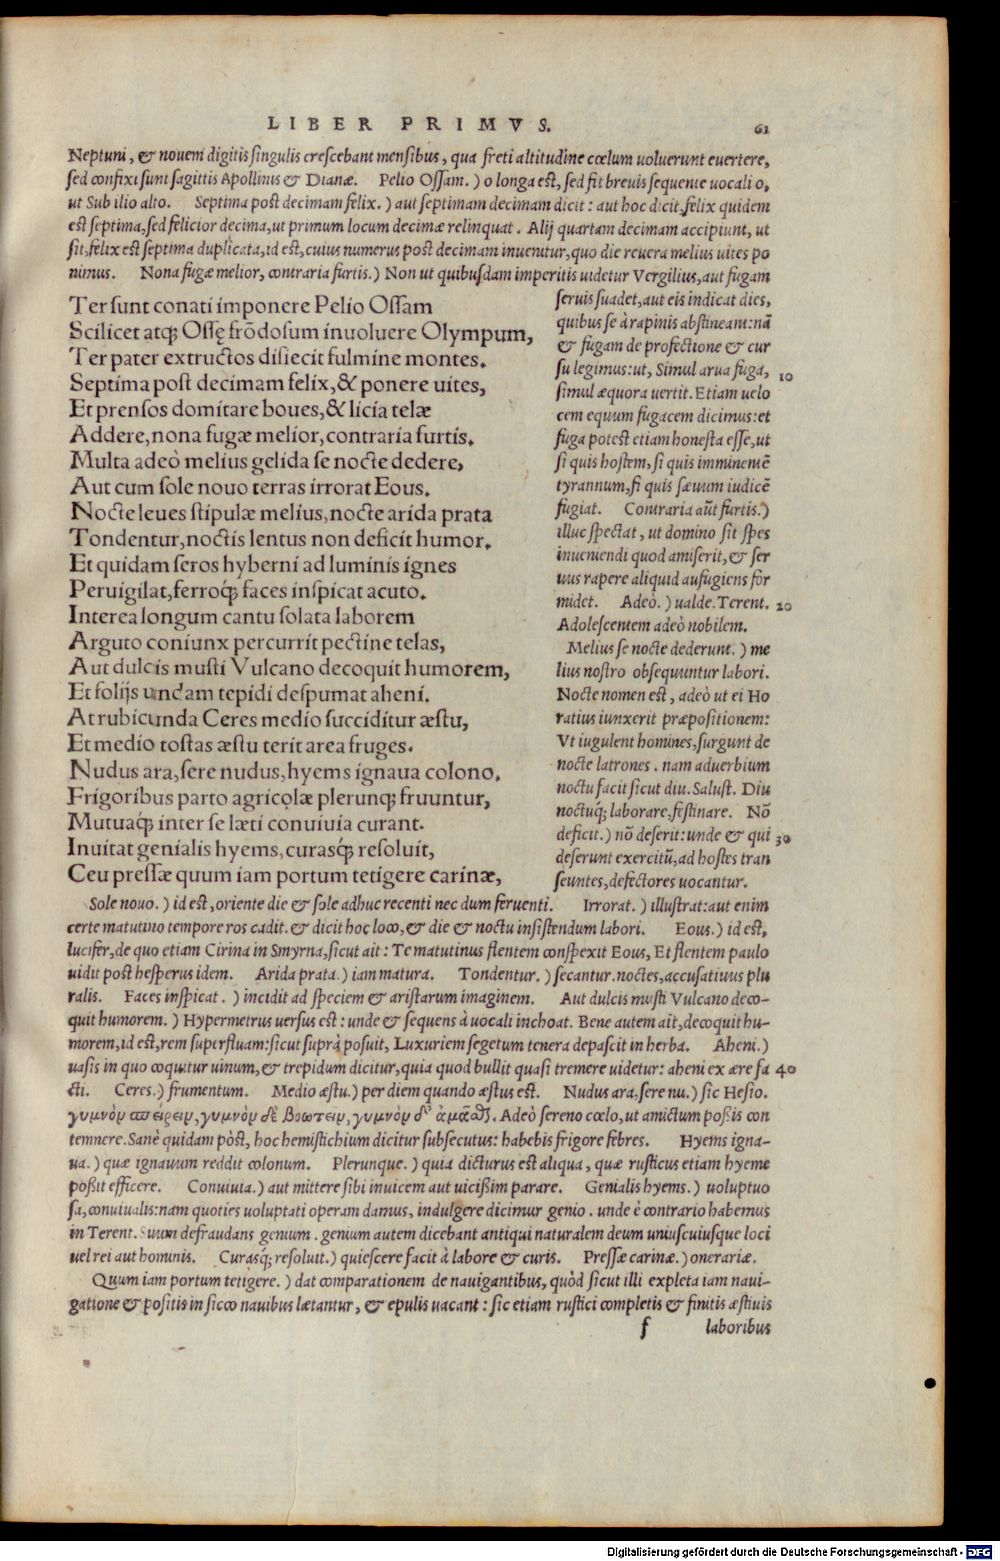 LIBER PRIMVS. 61
Neptuni, & nouem digitis singulis crescebant mensibus, qua freti altitudine cœlum uoluerunt euertere,
sed confixi sunt sagittis Apollinis & Dianæ. Pelio Ossam.) o longa est, sed fit breuis sequente uocali o,
ut Sub ilio alto. Septima post decimam felix.) aut septimam decimam dicit: aut hoc dicit, felix quidem
est septima, sed felicior decima, ut primum locum decimæ relinquat. Alij quartam decimam accipiunt, ut
sit, felix est septima duplicata, id est, cuius numerus post decimam inuenitur, quo die reuera melius uites po
nimus. Nona fugæ melior, contraria furtis.) Non ut quibusdam imperitis uidetur Vergilius, aut fugam
Ter sunt conati imponere Pelio Ossam
Scilicet atq; Ossę frõdosum inuoluere Olympum,
Ter pater extructos disiecit fulmine montes.
Septima post decimam felix, & ponere uites,
Et prensos domitare boues, & licia telæ
Addere, nona fugæ melior, contraria furtis.
Multa adeò melius gelida se nocte dedere,
Aut cum sole nouo terras irrorat Eous.
Nocte leues stipulæ melius, nocte arida prata
Tondentur, noctis lentus non deficit humor.
Et quidam seros hyberni ad luminis ignes
Peruigilat, ferroq́; faces inspicat acuto.
Interea longum cantu solata laborem
Arguto coniunx percurrit pectine telas,
Aut dulcis musti Vulcano decoquit humorem,
Et folijs undam tepidi despumat aheni.
At rubicunda Ceres medio succiditur æstu,
Et medio tostas æstu terit area fruges.
Nudus ara, sere nudus, hyems ignaua colono.
Frigoribus parto agricolæ plerunq; fruuntur,
Mutuaq́; inter se læti conuiuia curant.
Inuitat genialis hyems, curasq́; resoluit,
Ceu pressæ quum iam portum tetigere carinæ,
seruis suadet, aut eis indicat dies,
quibus se à rapinis abstineant: nã
& fugam de profectione & cur
su legimus: ut, Simul arua fuga, 10
simul æquora uertit. Etiam uelo
cem equum fugacem dicimus: et
fuga potest etiam honesta esse, ut
si quis hostem, si quis imminentẽ
tyrannum, si quis sæuum iudicẽ
fugiat. Contraria aũt furtis.)
illuc spectat, ut domino sit spes
inueniendi quod amiserit, & ser
uus rapere aliquid aufugiens for
midet. Adeò.) ualde. Terent. 20
Adolescentem adeò nobilem.
Melius se nocte dederunt.) me
lius nostro obsequuntur labori.
Nocte nomen est, adeò ut ei Ho
ratius iunxerit præpositionem:
Vt iugulent homines, surgunt de
nocte latrones. nam aduerbium
noctu facit sicut diu. Salust. Diu
noctuq́; laborare, festinare. Nõ
deficit.) nõ deserit: unde & qui 30
deserunt exercitũ, ad hostes tran
seuntes, defectores uocantur.
Sole nouo.) id est, oriente die & sole adhuc recenti nec dum feruenti. Irrorat.) illustrat: aut enim
certe matutino tempore ros cadit. & dicit hoc loco, & die & noctu insistendum labori. Eous.) id est,
lucifer, de quo etiam Cirina in Smyrna, sicut ait: Te matutinus flentem conspexit Eous, Et flentem paulo
uidit post hesperus idem. Arida prata.) iam matura. Tondentur.) secantur. noctes, accusatiuus plu
ralis. Faces inspicat.) incidit ad speciem & aristarum imaginem. Aut dulcis musti Vulcano deco-
quit humorem.) Hypermetrus uersus est: unde & sequens à uocali inchoat. Bene autem ait, decoquit hu-
morem, id est, rem superfluam: sicut suprà posuit, Luxuriem segetum tenera depascit in herba. Aheni.)
uasis in quo coquitur uinum, & trepidum dicitur, quia quod bullit quasi tremere uidetur: aheni ex ære fa 40
cti. Ceres.) frumentum. Medio æstu.) per diem quando æstus est. Nudus ara, sere nu.) sic Hesio.
γυμνὸν σπείρειν, γυμνὸν δὲ βοωτεῖν, γυμνὸν δ' ἀμᾶσθαι. Adeò sereno cœlo, ut amictum possis con
temnere. Sanè quidam pòst, hoc hemistichium dicitur subsecutus: habebis frigore febres. Hyems igna-
ua.) quæ ignauum reddit colonum. Plerunque.) quia dicturus est aliqua, quæ rusticus etiam hyeme
possit efficere. Conuiuia.) aut mittere sibi inuicem aut uicissim parare. Genialis hyems.) uoluptuo
sa, conuiualis: nam quoties uoluptati operam damus, indulgere dicimur genio. unde è contrario habemus
in Terent. Suum defraudans genium. genium autem dicebant antiqui naturalem deum uniuscuiusque loci
uel rei aut hominis. Curasq́; resoluit.) quiescere facit à labore & curis. Pressæ carinæ.) onerariæ.
Quum iam portum tetigere.) dat comparationem de nauigantibus, quòd sicut illi expleta iam naui-
gatione & positis in sicco nauibus lætantur, & epulis uacant: sic etiam rustici completis & finitis æstiuis
f laboribus
Digitalisierung gefördert durch die Deutsche Forschungsgemeinschaft - DFG